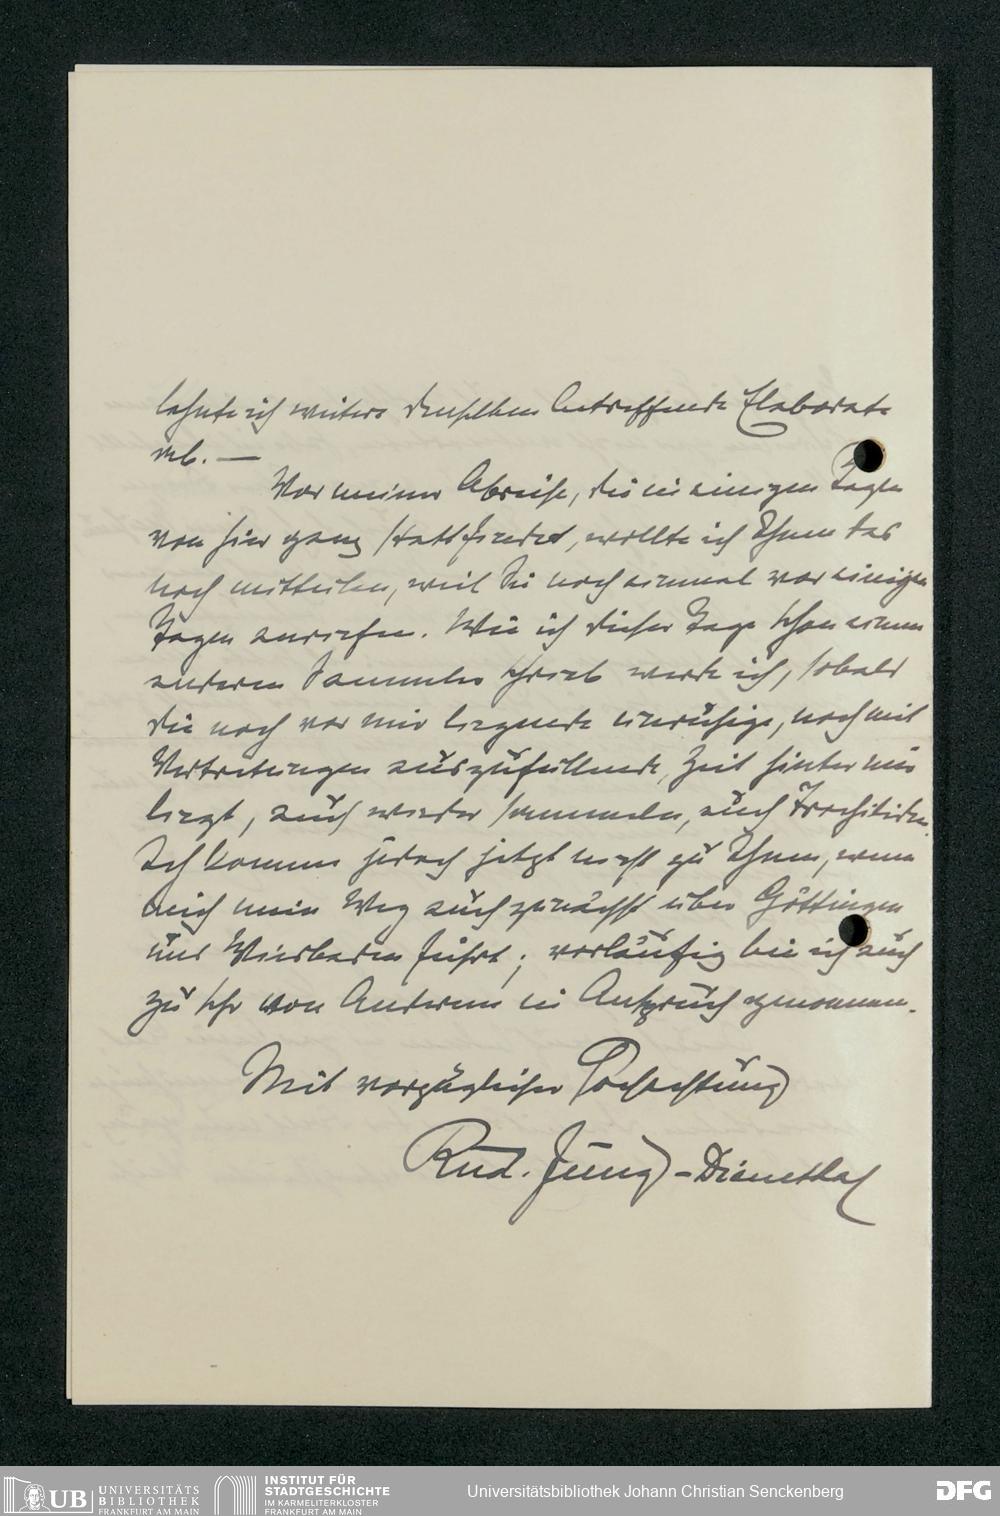 lehnte ich weitere denselben betreffende Elaborate
ab. —
Vor meiner Abreise, die in einigen Tagen
von hier ganz stattfindet, wollte ich Ihnen das
noch mitteilen, weil Sie noch einmal vor einigen
Tagen anriefen. Wie ich dieser Tage schon einem
anderen Sammler schrieb werde ich, sobald
die noch vor mir liegende unruhige, noch mit
Vertretungen auszufüllende, Zeit hinter mir
liegt, auch wieder sammeln, auch Trochiliden.
Ich komme jedoch jetzt nicht zu Ihnen, wenn
mich mein Weg auch zunächst über Göttingen
und Wiesbaden führt; vorläufig bin ich auch
zu sehr von Anderem in Anspruch genommen.
Mit vorzüglicher Hochachtung
Rud. Jung-Dienethal
UB UNIVERSITÄTS
BIBLIOTHEK
FRANKFURT AM MAIN
INSTITUT FÜR
STADTGESCHICHTE
IM KARMELITERKLOSTER
FRANKFURT AM MAIN
Universitätsbibliothek Johann Christian Senckenberg
DFG